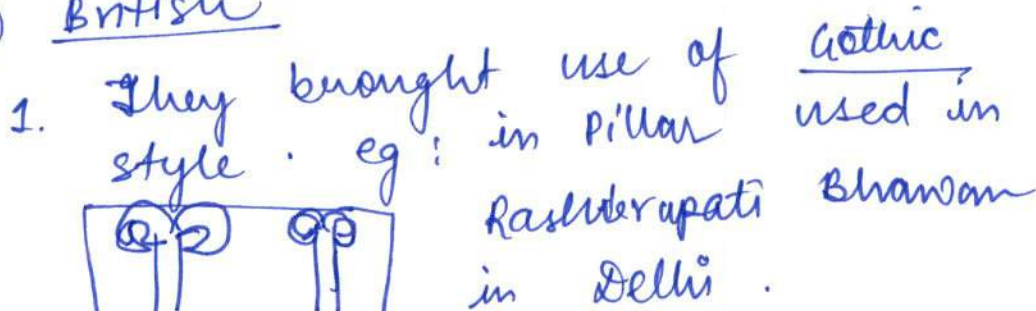 ) British
1. They brought use of Gothic
style. eg: in Pillar used in
Rashterapati Bhawan
in Delhi.